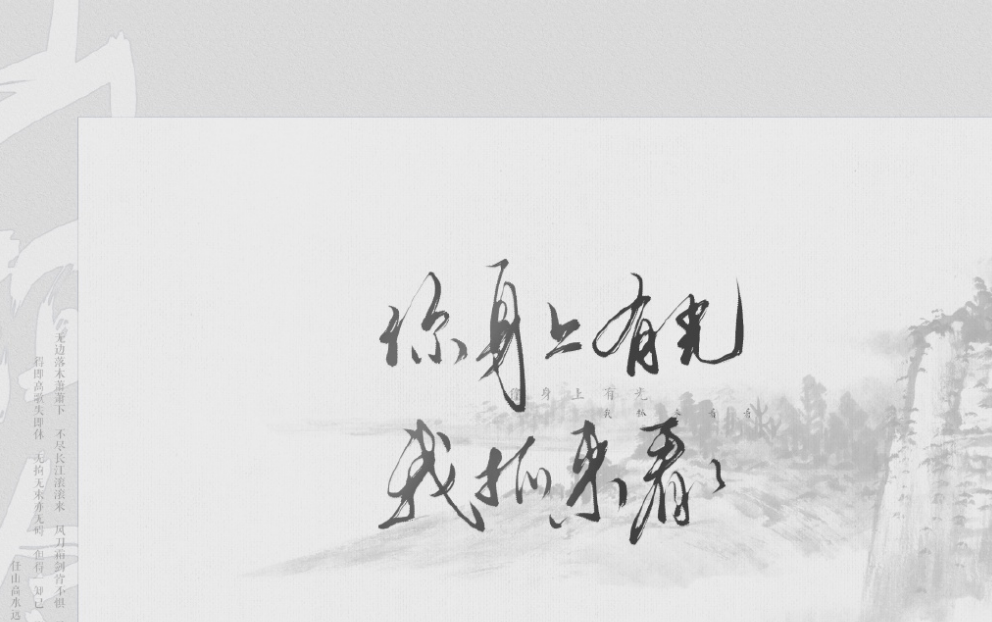 你身上有光
身上有光
我抓来看看
我抓来看看
无边落木萧萧下 不尽长江滚滚来 风刀霜剑皆不惧
得即高歌失即休 无拘无束亦无碍 但得 知己
任山高水远